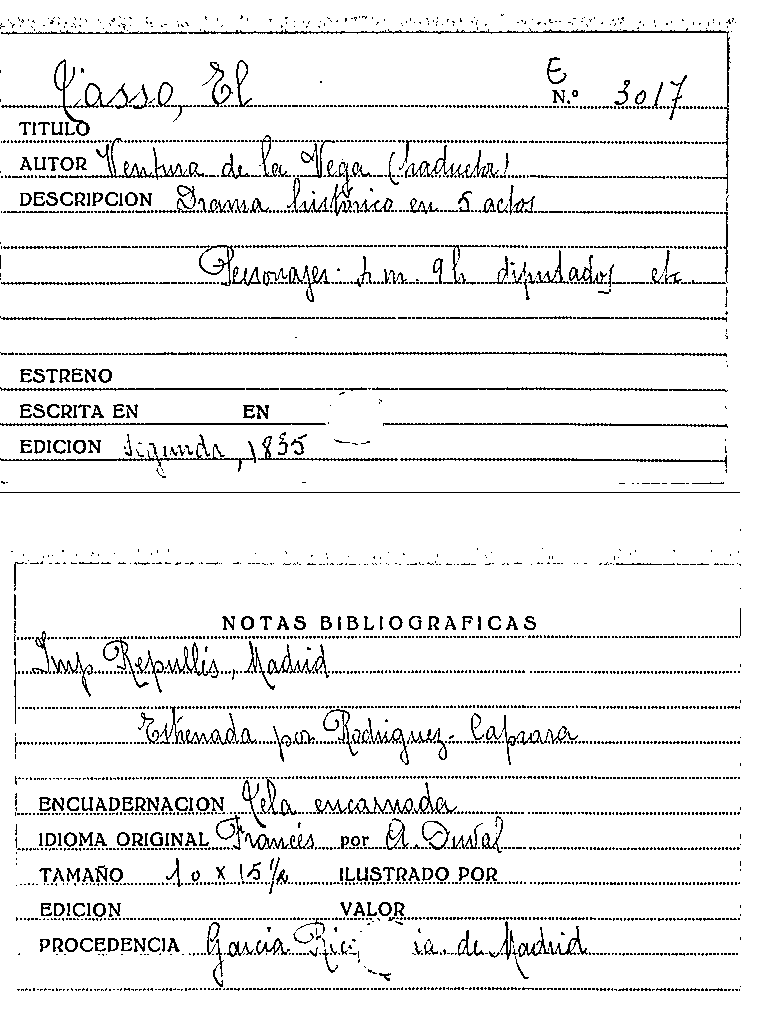 Tasso, El
E
N.º 3017
TITULO
AUTOR Ventura de la Vega (traductor)
DESCRIPCION Drama histórico en 5 actos
Personajes: m. 9 h diputados etc.
ESTRENO
ESCRITA EN EN
EDICION Segunda, 1835
NOTAS BIBLIOGRAFICAS
Imp Repullés, Madrid
Estrenada por Rodriguez - Caprara
ENCUADERNACION Tela encarnada
IDIOMA ORIGINAL Francés por A. Duval
TAMAÑO 10 x 15 1/2 ILUSTRADO POR
EDICION VALOR
PROCEDENCIA Garcia Rico de Madrid